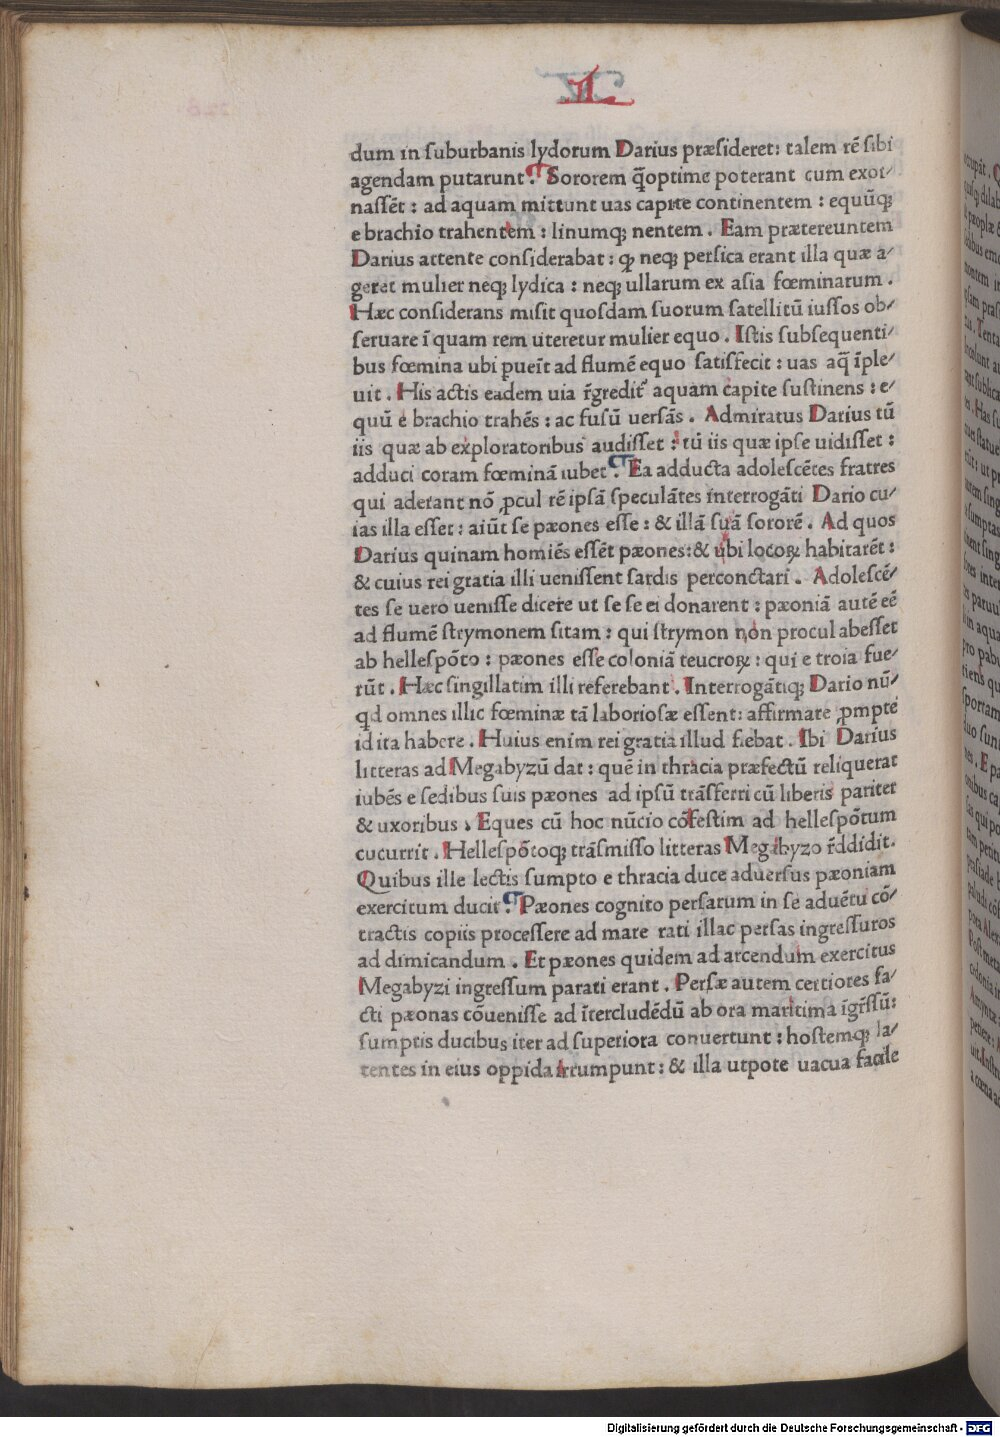 L
dum in ſuburbanis lydorum Darius præſideret: talem rē ſibi
agendam putarunt. ¶ Sororem q̄optime poterant cum exor/
naſſēt: ad aquam mittunt uas capite continentem: equūq;
e brachio trahentem: linumq; nentem. Eam prætereuntem
Darius attente conſiderabat: ꝙ neq; perſica erant illa quæ a/
geret mulier neq; lydica: neq; ullarum ex aſia fœminarum.
Hæc conſiderans miſit quoſdam ſuorum ſatellitū iuſſos ob/
ſeruare ī quam rem uteretur mulier equo. Iſtis ſubſequenti/
bus fœmina ubi pueīt ad flumē equo ſatiſfecit: uas aq̄ īple/
uit. His actis eadem uia r̄gredit᷑ aquam capite ſuſtinens: e/
quū e brachio trahēs: ac fuſū uerſās. Admiratus Darius tū
iis quæ ab exploratoribus audiſſet: tū iis quæ ipſe uidiſſet:
adduci coram fœminā iubet ¶ Ea adducta adoleſcētes fratres
qui aderant nō ꝓcul rē ipſā ſpeculātes interrogāti Dario cu/
ias illa eſſet: aiūt ſe pæones eſſe: & illā ſuā ſororē. Ad quos
Darius quinam homiēs eſſēt pæones: & ubi locoꝝ habitarēt:
& cuius rei gratia illi ueniſſent ſardis perconctari. Adoleſcē/
tes ſe uero ueniſſe dicere ut ſe ſe ei donarent: pæoniā autē eē
ad flumē ſtrymonem ſitam: qui ſtrymon non procul abeſſet
ab helleſpōto: pæones eſſe coloniā teucroꝝ: qui e troia fue/
rūt. Hæc ſingillatim illi referebant. Interrogātiq; Dario nū/
qd omnes illic fœminæ tā laborioſæ eſſent: affirmare ꝓmpte
id ita habere. Huius enim rei gratia illud fiebat. Ibi Darius
litteras ad Megabyzū dat: quē in thracia præfectū reliquerat
iubēs e ſedibus ſuis pæones ad ipſū trāſferri cū liberis pariter
& uxoribus. Eques cū hoc nūcio cōfeſtim ad helleſpōtum
cucurrit. Helleſpōtoq; trāſmiſſo litteras Megabyzo r̄ddidit.
Quibus ille lectis ſumpto e thracia duce aduerſus pæoniam
exercitum ducit. ¶ Pæones cognito perſarum in ſe aduētu cō/
tractis copiis proceſſere ad mare rati illac perſas ingreſſuros
ad dimicandum. Et pæones quidem ad arcendum exercitus
Megabyzi ingreſſum parati erant. Perſæ autem certiores fa/
cti pæonas cōueniſſe ad ītercludēdū ab ora maritima īgr̄ſſū:
ſumptis ducibus iter ad ſuperiora conuertunt: hoſtemq; la/
tentes in eius oppida irrumpunt: & illa utpote uacua facile
Digitalisierung gefördert durch die Deutsche Forschungsgemeinschaft - DFG